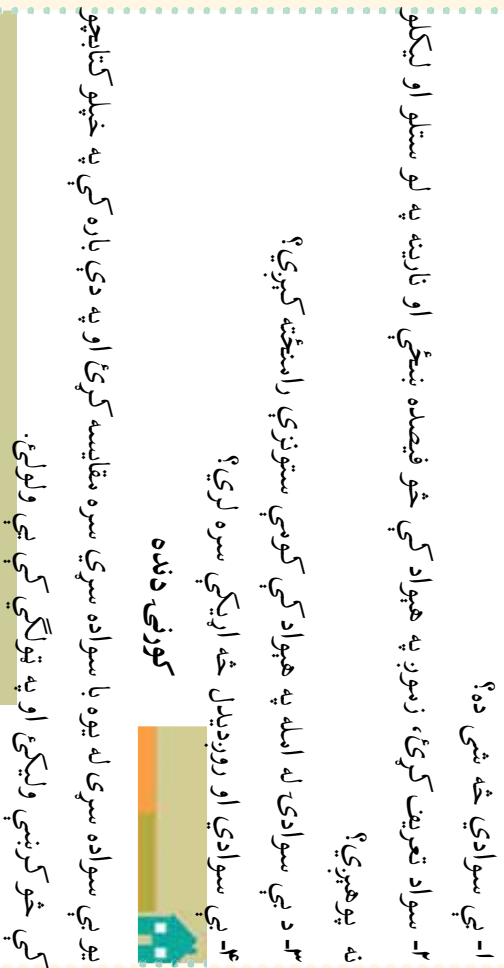 ۱ـ بې سوادي څه شی ده؟
۲ـ سواد تعریف کړئ، زموږ په هېواد کې څو فیصده ښځې او نارینه په لو ستلو او لیکلو
نه پوهېږي؟
۳ـ د بې سوادۍ له امله په هېواد کې کومې ستونزې رامنځته کېږي؟
۴ـ بې سوادي او روږدېدل څه اړیکې سره لري؟
کورنۍ دنده
یو بې سواده سړی له یوه با سواده سړي سره مقایسه کړئ او په دې باره کې په خپلو کتابچو
کې څو کرښې ولیکئ او په ټولګي کې یې ولولئ.